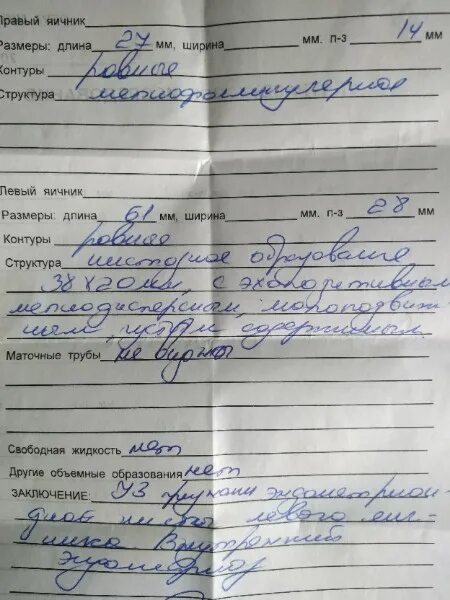 Правый яичник
Размеры: длина 27 мм, ширина мм. п-з 14 мм
Контуры ровные
Структура мелкофолликулярное
Левый яичник
Размеры: длина 61 мм, ширина мм. п-з 28 мм
Контуры ровные
Структура кистозное образование
38х20мм, с эхопозитивным
мелкодисперсным, малоподвиж-
ным, густым содержимым.
Маточные трубы не видны
Свободная жидкость нет
Другие объемные образования нет
ЗАКЛЮЧЕНИЕ: УЗ признаки эндометриои-
дной кисты левого яич-
ника. Внутренний
эндометриоз